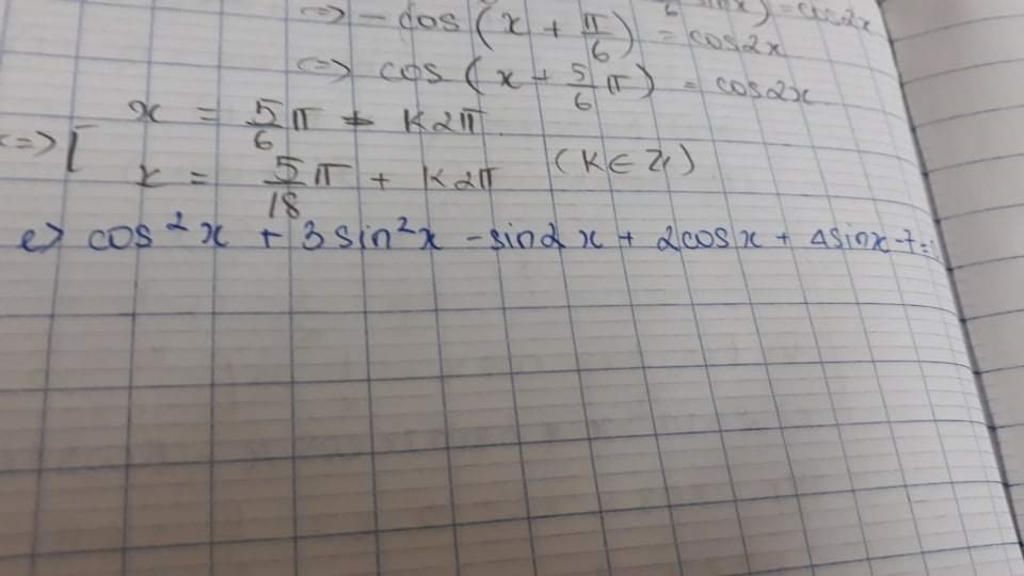 <=> -cos(x + π/6) = cos2x
<=> cos(x + 5/6 π) = cos2x
<=> [ x = 5/6 π + K2π
x = 5/18 π + K2π (K ∈ Z)
e> cos²x + 3sin²x - sin2x + 2cosx + 4sinx - 7 =